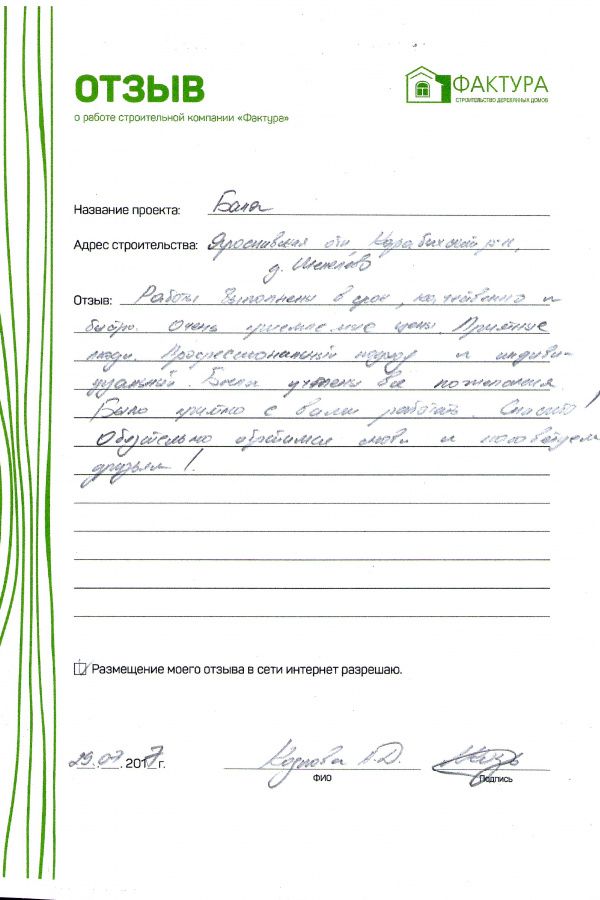 ОТЗЫВ
о работе строительной компании «Фактура»
ФАКТУРА
СТРОИТЕЛЬСТВО ДЕРЕВЯННЫХ ДОМОВ
Название проекта: Баня
Адрес строительства: Ярославская обл. Карабихский р-н,
д.
Отзыв: Работы выполнены в срок, качественно и
быстро. Очень приемлемые цены. Приятные
люди. Профессиональный подход и индиви-
дуальный. Были учтены все пожелания.
Было приятно с вами работать. Спасибо!
Обязательно обратимся снова и посоветуем
друзьям!
Размещение моего отзыва в сети интернет разрешаю.
29.07.2017г.
А.Д.
ФИО
Подпись